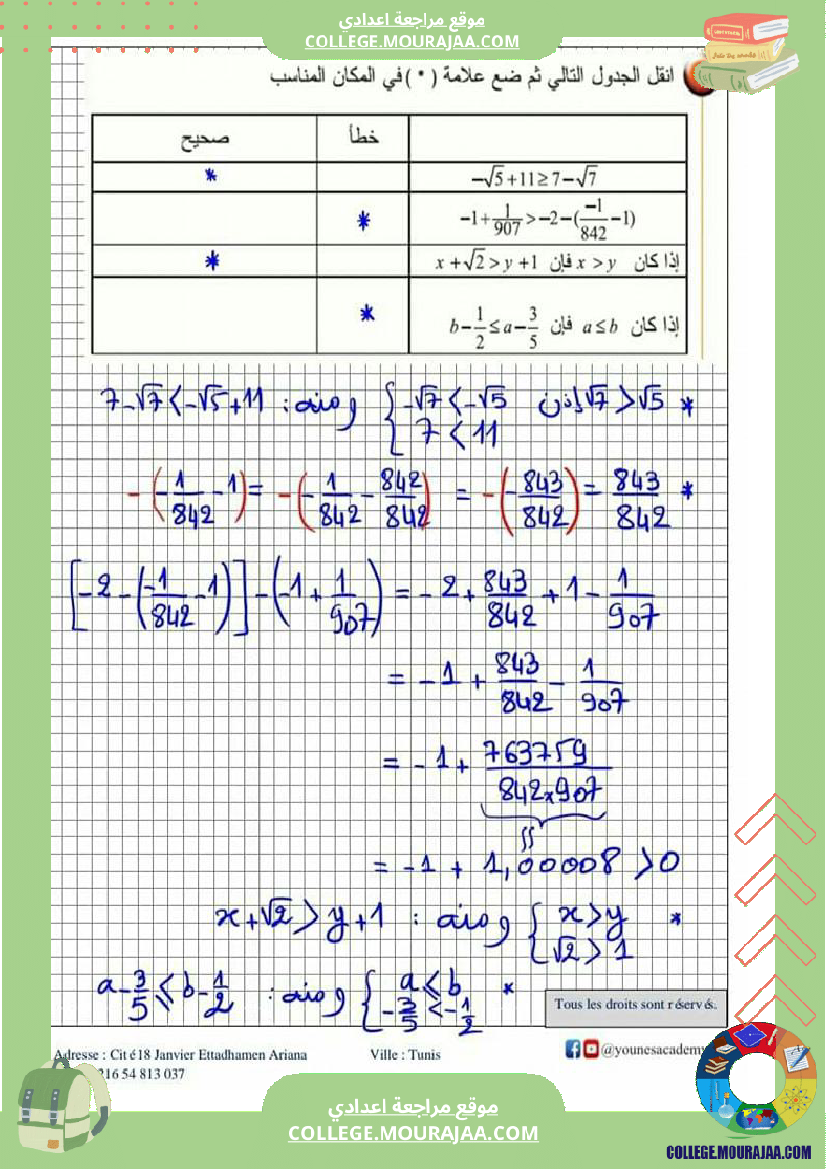 موقع مراجعة اعدادي
COLLEGE.MOURAJAA.COM
انقل الجدول التالي ثم ضع علامة ( * ) في المكان المناسب
خطأ صحيح
-√5+11≥7-√7 *
-1+1/907>-2-(-1/842-1) *
إذا كان x>y فإن x+√2>y+1 *
إذا كان a≤b فإن b-1/2≤a-3/5 *
* √7>√5 إذن { -√7<-√5 ومنه : 7-√7<-√5+11
7<11
-(-1/842-1)= -(-1/842-842/842) = -(-843/842)= 843/842 *
[-2-(-1/842-1)]-(-1+1/907)=-2+843/842+1-1/907
= -1+843/842-1/907
= -1+763759/842×907
= -1+1,00008>0
* { x>y ومنه : x+√2>y+1
√2>1
* { a≤b ومنه : a-3/5≤b-1/2
-3/5<-1/2
Tous les droits sont réservés.
Adresse : Cité18 Janvier Ettadhamen Ariana Ville : Tunis @younesacademy
216 54 813 037
موقع مراجعة اعدادي
COLLEGE.MOURAJAA.COM
COLLEGE.MOURAJAA.COM